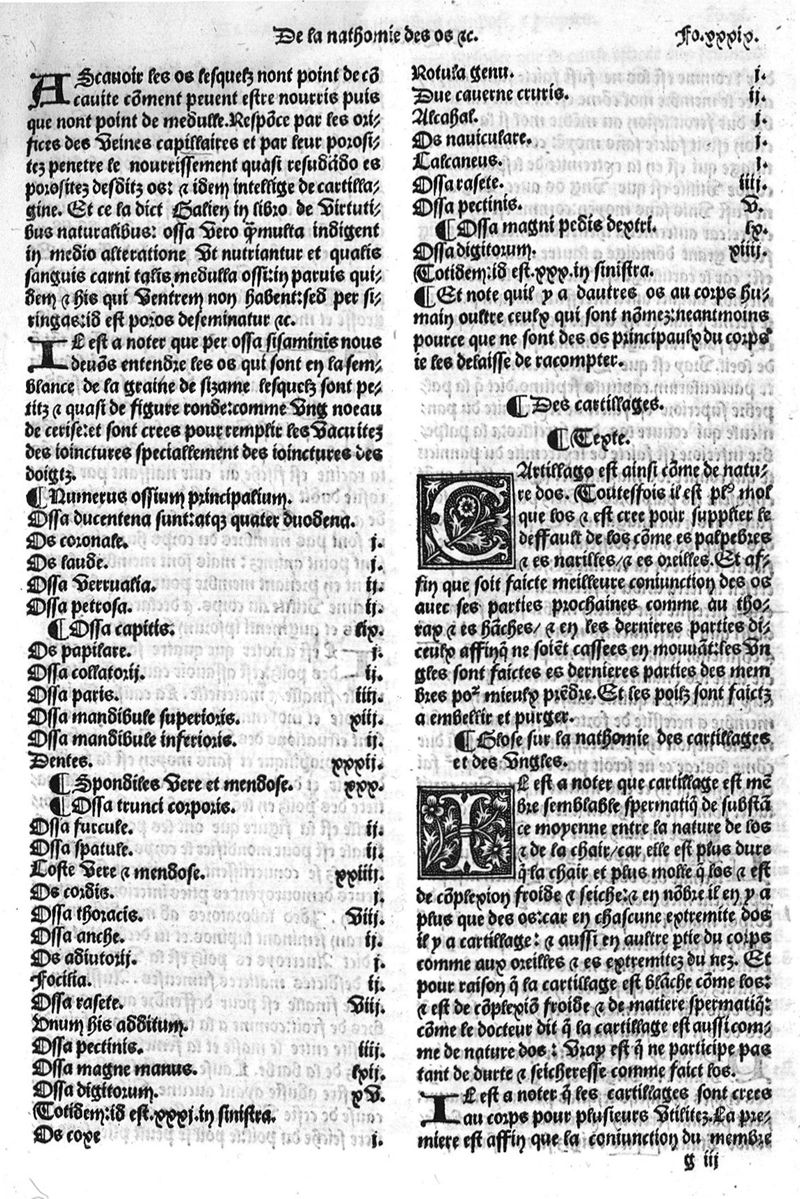 De la nathomie des os ⁊c.
Fo.xxxix.
AScauoir les os lesquelz nont point de cõ
cauite cõment peuent estre nourris puis
que nont point de medulle. Respõce par les ori-
fices des Veines capillaires et par leur porosi-
tez penetre le nourrissement quasi resudãdo es
porositez desditz os: ⁊ idem intellige de cartilla-
gine. Et ce la dict Galien in libro de Virtuti-
bus naturalibus: ossa Vero q̃ multa indigent
in medio alteratione Vt nutriantur et qualis
sanguis carni talis medulla ossi: in paruis qui-
dem ⁊ his qui Ventrem non habent: sed per si-
ringas: id est poros deseminatur ⁊c.
IL est a noter que per ossa sisaminis nous
deuõs entendre les os qui sont en la sem-
blance de la graine de sizame lesquelz sont pe-
titz ⁊ quasi de figure ronde: comme Vng noeau
de cerise: et sont crees pour remplir les Vacuitez
des ioinctures specialement des ioinctures des
doigtz.
¶ Numerus ossium principalium.
Ossa ducentena sunt: atqz quater duodena.
Os coronale. j.
Os laude. j.
Ossa Verrualia. ij.
Ossa petrosa. ij.
¶ Ossa capitis. lix.
Os papilare. j.
Ossa collatorij. ij.
Ossa paris. iiij.
Ossa mandibule superioris. xiij.
Ossa mandibule inferioris. ij.
Dentes. xxxij.
¶ Spondiles Vere et mendose. xxx.
¶ Ossa trunci corporis.
Ossa furcule. ij.
Ossa spatule. ij.
Coste Vere ⁊ mendose. xxiiij.
Os cordis. j.
Ossa thoracis. Viij.
Ossa anche. ij.
Os adiutorij. j.
Focilia. ij.
Ossa rasete. Viij.
Vnum his additum.
Ossa pectinis. iiij.
Ossa magne manus. lxij.
Ossa digitorum. xV.
Totidem: id est .xxxj. in sinistra.
Os coxe j.
Rotula genu. j.
Due cauerne cruris. ij.
Alcahal. j.
Os nauiculare. j.
Calcaneus. j.
Ossa rasete. iiij.
Ossa pectinis. V.
¶ Ossa magni pedis dextri. lx.
Ossa digitorum. xiiij.
Totidem: id est .xxx. in sinistra.
¶ Et note quil y a dautres os au corps hu-
main oultre ceulx qui sont nõmez: neantmoins
pource que ne sont des os principaulx du corps
ie les delaisse de racompter.
¶ Des cartillages.
¶ Texte.
CArtillago est ainsi cõme de natu-
re dos. Toutesfois il est pl⁹ mol
que los ⁊ est cree pour supplier le
deffault de los cõme es palpebres
⁊ es narilles/ ⁊ es oreilles. Et af-
fin que soit faicte meilleure coniunction des os
auec ses parties prochaines comme au tho-
rax ⁊ es hãches/ ⁊ en les dernieres parties di-
ceulx affinq̃ ne soiẽt cassees en mouuãt: les Vn
gles sont faictes es dernieres parties des mem
bres po² mieulx prẽdre. Et les poilz sont faictz
a embellir et purger.
¶ Glose sur la nathomie des cartillages
et des Vngles.
IL est a noter que cartillage est mẽ
bre semblable spermatiq̃ de substã
ce moyenne entre la nature de los
⁊ de la chair/ car elle est plus dure
q̃ la chair et plus molle q̃ los ⁊ est
de cõplexion froide ⁊ seiche: ⁊ en nõbre il en y a
plus que des os: car en chascune extremite dos
il y a cartillage: ⁊ aussi en aultre ptie du corps
comme aux oreilles ⁊ es extremitez du nez. Et
pour raison q̃ la cartillage est blãche cõme los:
⁊ est de cõplexiõ froide ⁊ de matiere spermatiq̃:
cõme le docteur dit q̃ la cartillage est aussi com-
me de nature dos: Vray est q̃ ne participe pas
tant de durte ⁊ seicheresse comme faict los.
IL est a noter q̃ les cartillages sont crees
au corps pour plusieurs Vtilitez. La pre-
miere est affin que la coniunction du membre
g iij